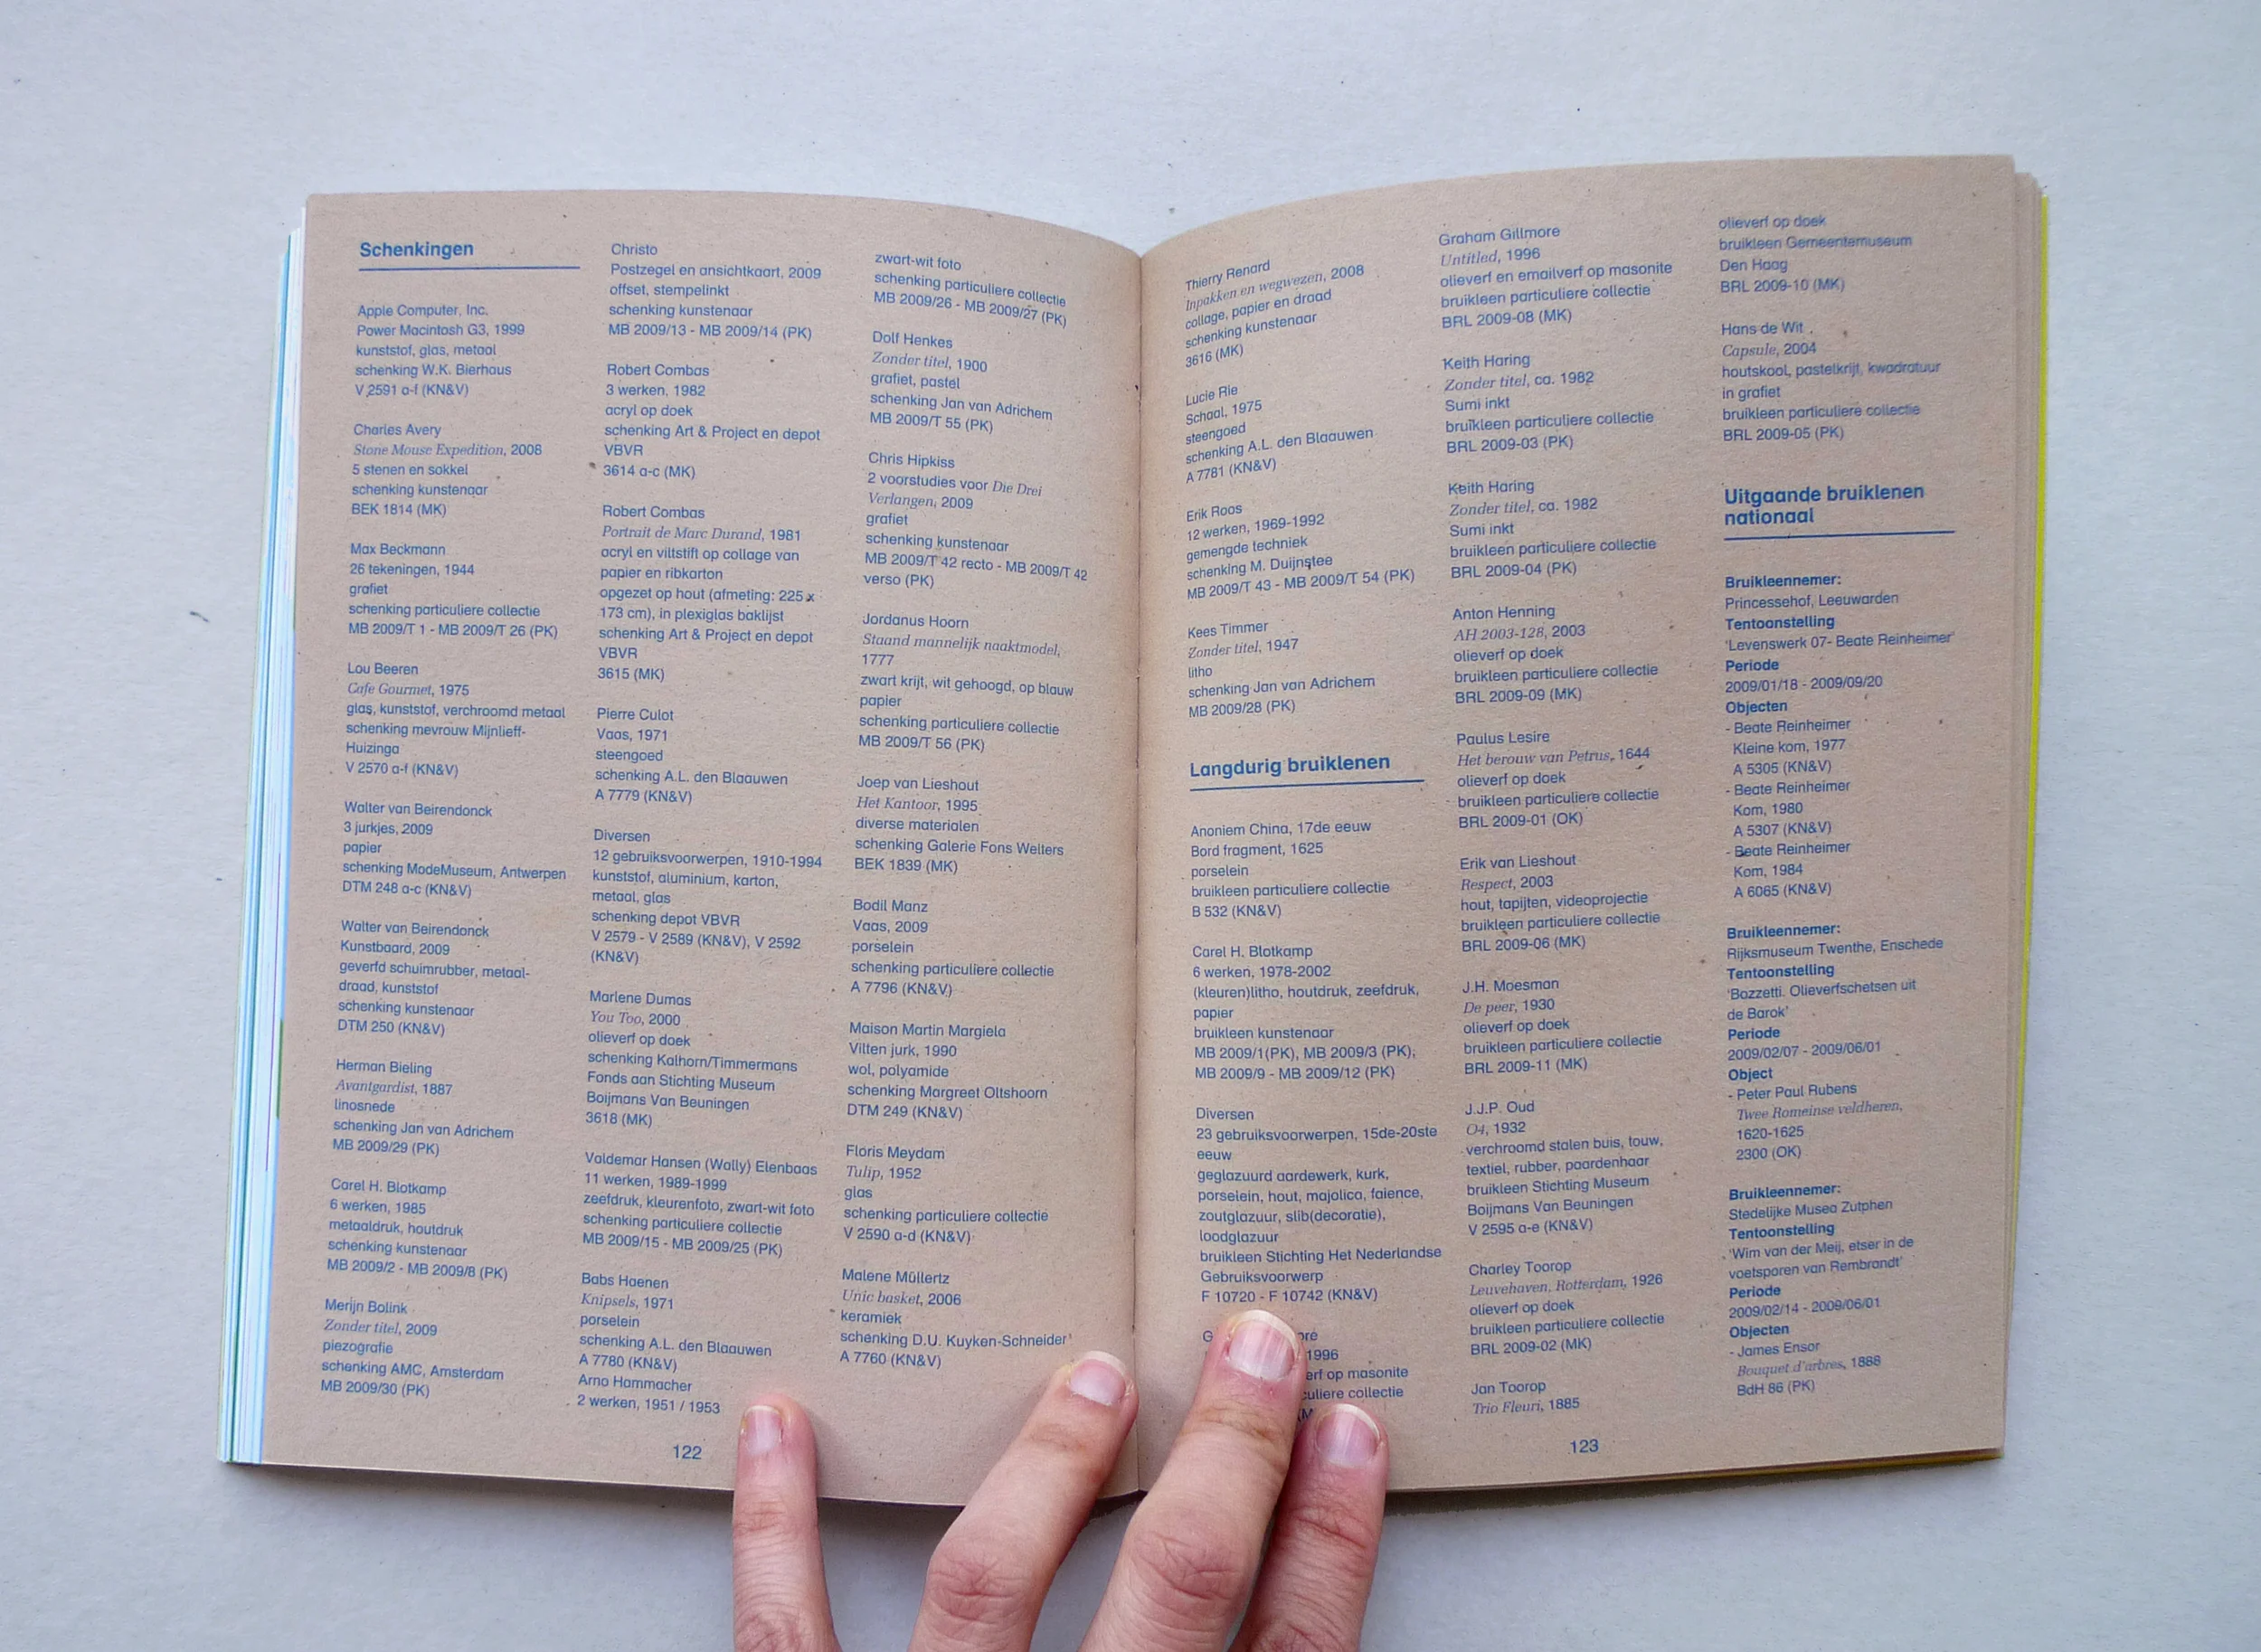 Schenkingen
Apple Computer, Inc.
Power Macintosh G3, 1999
kunststof, glas, metaal
schenking W.K. Bierhaus
V 2591 a-f (KN&V)
Charles Avery
Stone Mouse Expedition, 2008
5 stenen en sokkel
schenking kunstenaar
BEK 1814 (MK)
Max Beckmann
26 tekeningen, 1944
grafiet
schenking particuliere collectie
MB 2009/T 1 - MB 2009/T 26 (PK)
Lou Beeren
Cafe Gourmet, 1975
glas, kunststof, verchroomd metaal
schenking mevrouw Mijnlieff-
Huizinga
V 2570 a-f (KN&V)
Walter van Beirendonck
3 jurkjes, 2009
papier
schenking ModeMuseum, Antwerpen
DTM 248 a-c (KN&V)
Walter van Beirendonck
Kunstbaard, 2009
geverfd schuimrubber, metaal-
draad, kunststof
schenking kunstenaar
DTM 250 (KN&V)
Herman Bieling
Avantgardist, 1887
linosnede
schenking Jan van Adrichem
MB 2009/29 (PK)
Carel H. Blotkamp
6 werken, 1985
metaaldruk, houtdruk
schenking kunstenaar
MB 2009/2 - MB 2009/8 (PK)
Merijn Bolink
Zonder titel, 2009
piezografie
schenking AMC, Amsterdam
MB 2009/30 (PK)
Christo
Postzegel en ansichtkaart, 2009
offset, stempelinkt
schenking kunstenaar
MB 2009/13 - MB 2009/14 (PK)
Robert Combas
3 werken, 1982
acryl op doek
schenking Art & Project en depot
VBVR
3614 a-c (MK)
Robert Combas
Portrait de Marc Durand, 1981
acryl en viltstift op collage van
papier en ribkarton
opgezet op hout (afmeting: 225 x
173 cm), in plexiglas baklijst
schenking Art & Project en depot
VBVR
3615 (MK)
Pierre Culot
Vaas, 1971
steengoed
schenking A.L. den Blaauwen
A 7779 (KN&V)
Diversen
12 gebruiksvoorwerpen, 1910-1994
kunststof, aluminium, karton,
metaal, glas
schenking depot VBVR
V 2579 - V 2589 (KN&V), V 2592
(KN&V)
Marlene Dumas
You Too, 2000
olieverf op doek
schenking Kalhorn/Timmermans
Fonds aan Stichting Museum
Boijmans Van Beuningen
3618 (MK)
Valdemar Hansen (Wally) Elenbaas
11 werken, 1989-1999
zeefdruk, kleurenfoto, zwart-wit foto
schenking particuliere collectie
MB 2009/15 - MB 2009/25 (PK)
Babs Haenen
Knipsels, 1971
porselein
schenking A.L. den Blaauwen
A 7780 (KN&V)
Arno Hammacher
2 werken, 1951 / 1953
zwart-wit foto
schenking particuliere collectie
MB 2009/26 - MB 2009/27 (PK)
Dolf Henkes
Zonder titel, 1900
grafiet, pastel
schenking Jan van Adrichem
MB 2009/T 55 (PK)
Chris Hipkiss
2 voorstudies voor Die Drei
Verlangen, 2009
grafiet
schenking kunstenaar
MB 2009/T 42 recto - MB 2009/T 42
verso (PK)
Jordanus Hoorn
Staand mannelijk naaktmodel,
1777
zwart krijt, wit gehoogd, op blauw
papier
schenking particuliere collectie
MB 2009/T 56 (PK)
Joep van Lieshout
Het Kantoor, 1995
diverse materialen
schenking Galerie Fons Welters
BEK 1839 (MK)
Bodil Manz
Vaas, 2009
porselein
schenking particuliere collectie
A 7796 (KN&V)
Maison Martin Margiela
Vilten jurk, 1990
wol, polyamide
schenking Margreet Oltshoorn
DTM 249 (KN&V)
Floris Meydam
Tulip, 1952
glas
schenking particuliere collectie
V 2590 a-d (KN&V)
Malene Müllertz
Unic basket, 2006
keramiek
schenking D.U. Kuyken-Schneider
A 7760 (KN&V)
122
Thierry Renard
Inpakken en wegwezen, 2008
collage, papier en draad
schenking kunstenaar
3616 (MK)
Lucie Rie
Schaal, 1975
steengoed
schenking A.L. den Blaauwen
A 7781 (KN&V)
Erik Roos
12 werken, 1969-1992
gemengde techniek
schenking M. Duijnstee
MB 2009/T 43 - MB 2009/T 54 (PK)
Kees Timmer
Zonder titel, 1947
litho
schenking Jan van Adrichem
MB 2009/28 (PK)
Langdurig bruiklenen
Anoniem China, 17de eeuw
Bord fragment, 1625
porselein
bruikleen particuliere collectie
B 532 (KN&V)
Carel H. Blotkamp
6 werken, 1978-2002
(kleuren)litho, houtdruk, zeefdruk,
papier
bruikleen kunstenaar
MB 2009/1(PK), MB 2009/3 (PK),
MB 2009/9 - MB 2009/12 (PK)
Diversen
23 gebruiksvoorwerpen, 15de-20ste
eeuw
geglazuurd aardewerk, kurk,
porselein, hout, majolica, faience,
zoutglazuur, slib(decoratie),
loodglazuur
bruikleen Stichting Het Nederlandse
Gebruiksvoorwerp
F 10720 - F 10742 (KN&V)
1996
op masonite
collectie
Graham Gillmore
Untitled, 1996
olieverf en emailverf op masonite
bruikleen particuliere collectie
BRL 2009-08 (MK)
Keith Haring
Zonder titel, ca. 1982
Sumi inkt
bruikleen particuliere collectie
BRL 2009-03 (PK)
Keith Haring
Zonder titel, ca. 1982
Sumi inkt
bruikleen particuliere collectie
BRL 2009-04 (PK)
Anton Henning
AH 2003-128, 2003
olieverf op doek
bruikleen particuliere collectie
BRL 2009-09 (MK)
Paulus Lesire
Het berouw van Petrus, 1644
olieverf op doek
bruikleen particuliere collectie
BRL 2009-01 (OK)
Erik van Lieshout
Respect, 2003
hout, tapijten, videoprojectie
bruikleen particuliere collectie
BRL 2009-06 (MK)
J.H. Moesman
De peer, 1930
olieverf op doek
bruikleen particuliere collectie
BRL 2009-11 (MK)
J.J.P. Oud
O4, 1932
verchroomd stalen buis, touw,
textiel, rubber, paardenhaar
bruikleen Stichting Museum
Boijmans Van Beuningen
V 2595 a-e (KN&V)
Charley Toorop
Leuvehaven, Rotterdam, 1926
olieverf op doek
bruikleen particuliere collectie
BRL 2009-02 (MK)
Jan Toorop
Trio Fleuri, 1885
olieverf op doek
bruikleen Gemeentemuseum
Den Haag
BRL 2009-10 (MK)
Hans de Wit
Capsule, 2004
houtskool, pastelkrijt, kwadratuur
in grafiet
bruikleen particuliere collectie
BRL 2009-05 (PK)
Uitgaande bruiklenen
nationaal
Bruikleennemer:
Princessehof, Leeuwarden
Tentoonstelling
'Levenswerk 07- Beate Reinheimer'
Periode
2009/01/18 - 2009/09/20
Objecten
- Beate Reinheimer
Kleine kom, 1977
A 5305 (KN&V)
- Beate Reinheimer
Kom, 1980
A 5307 (KN&V)
- Beate Reinheimer
Kom, 1984
A 6065 (KN&V)
Bruikleennemer:
Rijksmuseum Twenthe, Enschede
Tentoonstelling
'Bozzetti. Olieverfschetsen uit
de Barok'
Periode
2009/02/07 - 2009/06/01
Object
- Peter Paul Rubens
Twee Romeinse veldheren,
1620-1625
2300 (OK)
Bruikleennemer:
Stedelijke Musea Zutphen
Tentoonstelling
'Wim van der Meij, etser in de
voetsporen van Rembrandt'
Periode
2009/02/14 - 2009/06/01
Objecten
- James Ensor
Bouquet d'arbres, 1888
BdH 86 (PK)
123